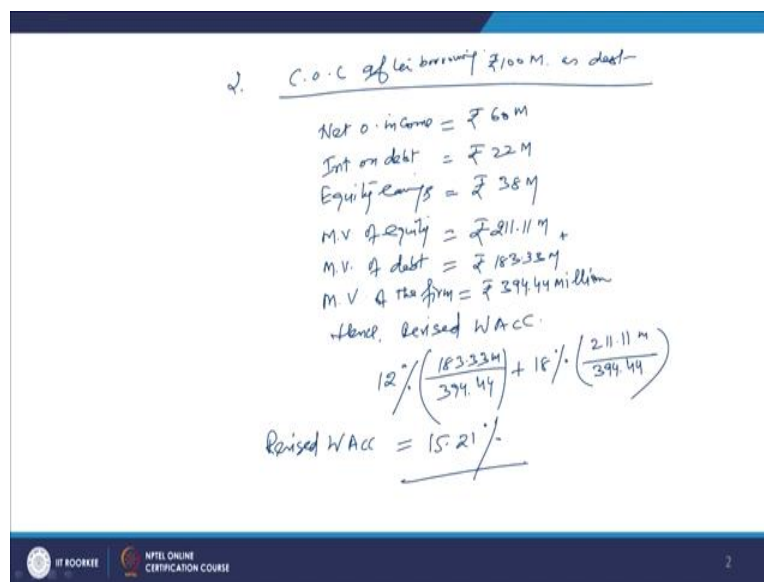 2. C.O.C after borrowing ₹100 M. as debt
Net O. income = ₹ 60 M
Int on debt = ₹ 22 M
Equity earngs = ₹ 38 M
M.V of equity = ₹ 211.11 M +
M.V. of debt = ₹ 183.33 M
M.V of the firm = ₹ 394.44 million
Hence, Revised WACC.
12% (183.33M/394.44) + 18% (211.11 M/394.44)
Revised WACC = 15.21%
IIT ROORKEE
NPTEL ONLINE
CERTIFICATION COURSE
2